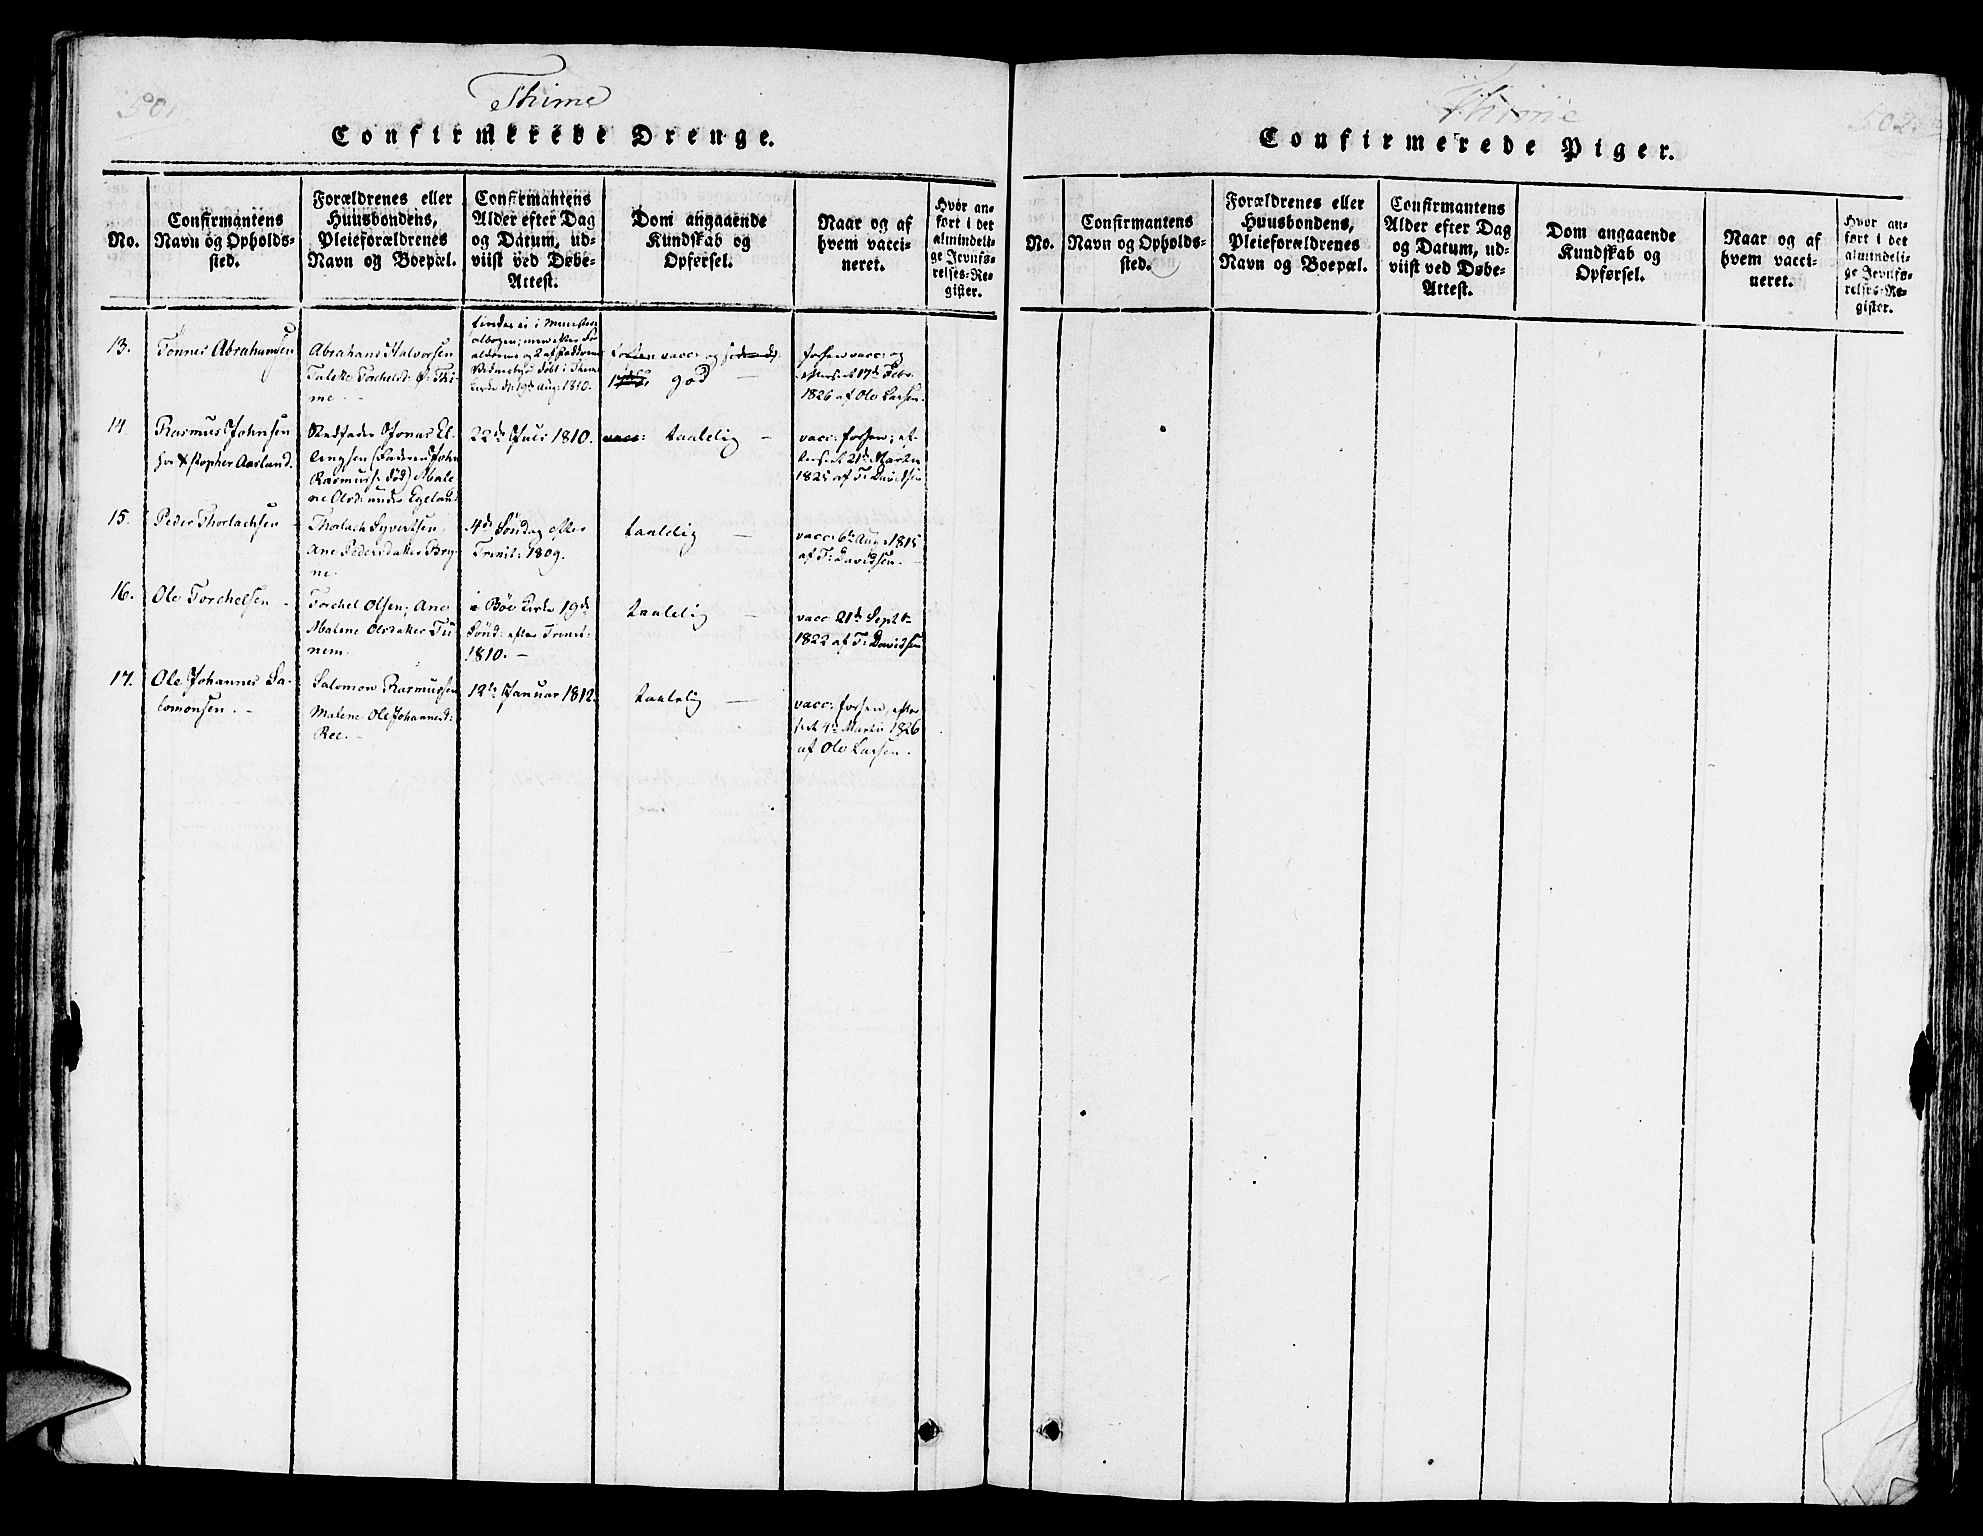 501
Thime
Confirmerede Drenge.
No.
Confirmantens
Navn og Opholds-
sted.
Forældrenes eller
Huusbondens,
Pleieforældrenes
Navn og Boepæl.
Confirmantens
Alder efter Dag
og Datum, ud-
viist ved Døbe-
Attest.
Dom angaaende
Kundskab og
Opførsel.
Naar og af
hvem vacci-
neret.
Hvor an-
ført i det
almindeli-
ge Jevnfø-
relses-Re-
gister.
13.
Tønnes Abrahamsen
Abraham Halvorsen
Talette Torchelsd: Ø: Thi-
me. -
findes ei i Ministeri
albogen; men efter Fo
ældrenes
døbt i Thime
Kirke d: 19de Aug: 1810.
vacc: og
god -
forhen vacc: og
efterseet 17de Febr.
1826 af Ole Larsen.
14.
Rasmus Johnsen
hos Kristopher Aarland.
Stedfader Jonas El-
lingsen (Faderen John
Rasmuss: død) Male
ne Olsd: under Egeland
22de Juli 1810.
vacc: taalelig -
vacc: forhen; ef-
terseet 21de Martii
1825 af T: Davidsen
15.
Peder Thorlachsen
Thorlach Syvertsen,
Ane Pedersdatter Bry-
ne.
4de Søndag efter
Trinit: 1809.
taalelig -
vacc: 6te Aug: 1815
af T: Davidsen. -
16.
Ole Torchelsen -
Torchel Olsen; Ane
Malene Olsdatter Tu
nem.
i Bøe Kirke 19de
Sønd: efter Trinit:
1810. -
taalelig -
vacc: 21de Septbr
1822 af T: Davidsen
17.
Ole Johannes Sa-
lomonsen. -
Salomon Rasmussen
Malene Ole Johannesd:
Ree. -
12te Januar 1812.
taalelig -
vacc: forhen, efter
seet 4de Martii 1826
af Ole Larsen.
Thime
502
Confirmerede Piger.
No.
Confirmantens
Navn og Opholds-
sted.
Forældrenes eller
Huusbondens,
Pleieforældrenes
Navn og Boepæl.
Confirmantens
Alder efter Dag
og Datum, ud-
viist ved Døbe-
Attest.
Dom angaaende
Kundskab og
Opførsel.
Naar og af
hvem vacci-
neret.
Hvor an-
ført i det
almindeli-
ge Jevnfø-
relses-Re-
gister.